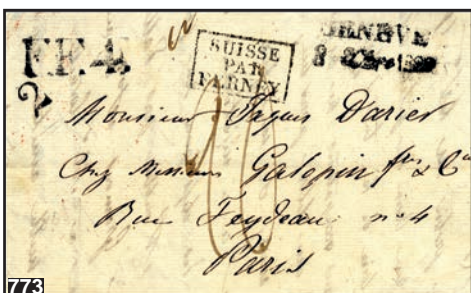 L.F.4.
SUISSE
PAR
FERNEY
GENEVE
2
Monsieur Jaques Darier
Chez Messieurs Galopin frs & Cie
Rue Feydeau n° 4
Paris
773